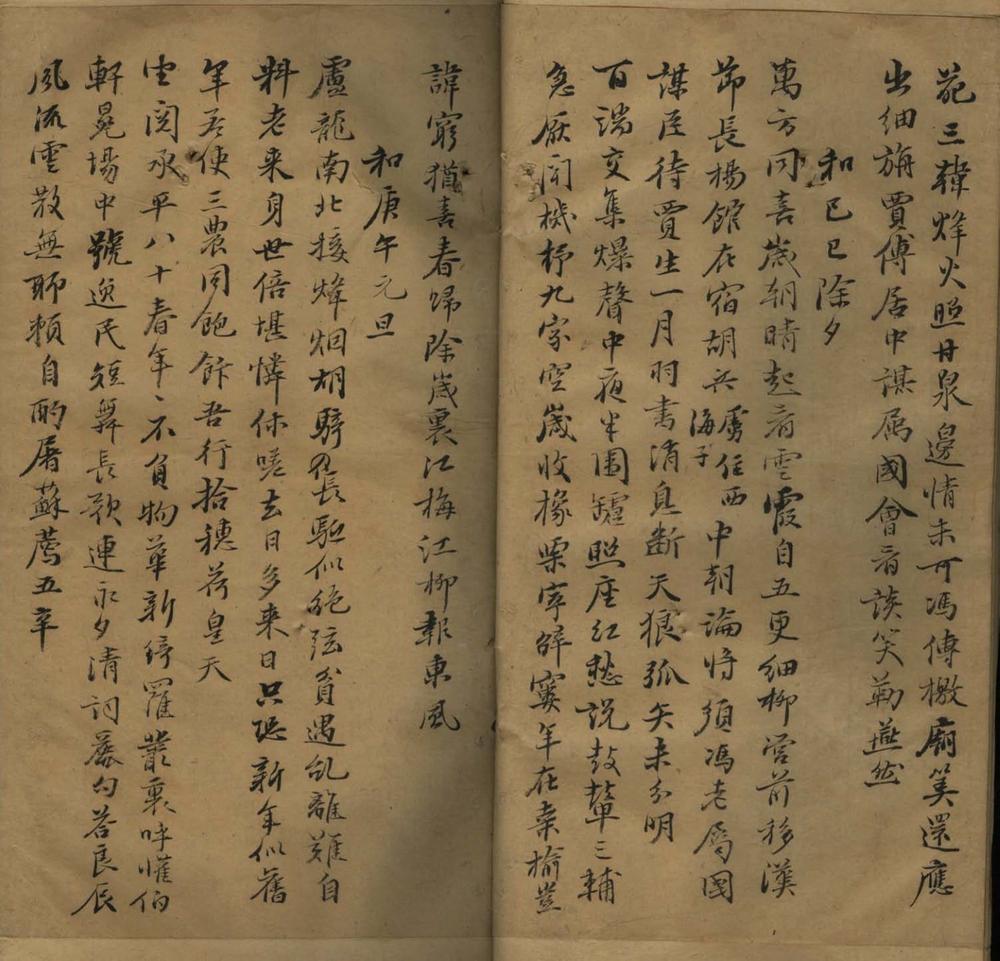 苑三韓烽火照甘泉邊情未可馮傳檄廟筭還應
出細旃賈傅居中謀屬國會看談笑勒燕然
和己巳除夕
萬方同喜歲朝晴起看雲霞自五更細柳營前移漢
節長楊館在宿胡兵虜住西海子中朝論將須馮老屬國
謀臣待賈生一月羽書消息斷天狼弧矢未分明
百端交集爆聲中夜半圍爐照座紅愁說鼓鼙三輔
急厭聞機杼九家空歲收橡栗寧辭窶年在桑榆豈
諱窮猶喜春歸除歲裏江梅江柳報東風
和庚午元旦
盧龍南北接烽烟胡騎長驅似絕弦貧遇亂離難自
料老来身世倍堪憐休嗟去日多来日只恐新年似舊
年吾使三農同飽飫吾行拾穗荷皇天
生閱承平八十春年〻不負物華新綺羅叢裏呼懽伯
軒冕場中號逸民短舞長歌連永夕清詞麗句答良辰
風流雲散無聊賴自酌屠蘇薦五辛